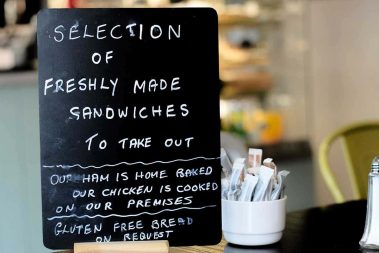 SELECTION
OF
FRESHLY MADE
SANDWICHES
TO TAKE OUT
OUR HAM IS HOME BAKED
OUR CHICKEN IS COOKED
ON OUR PREMISES
GLUTEN FREE BREAD
ON REQUEST